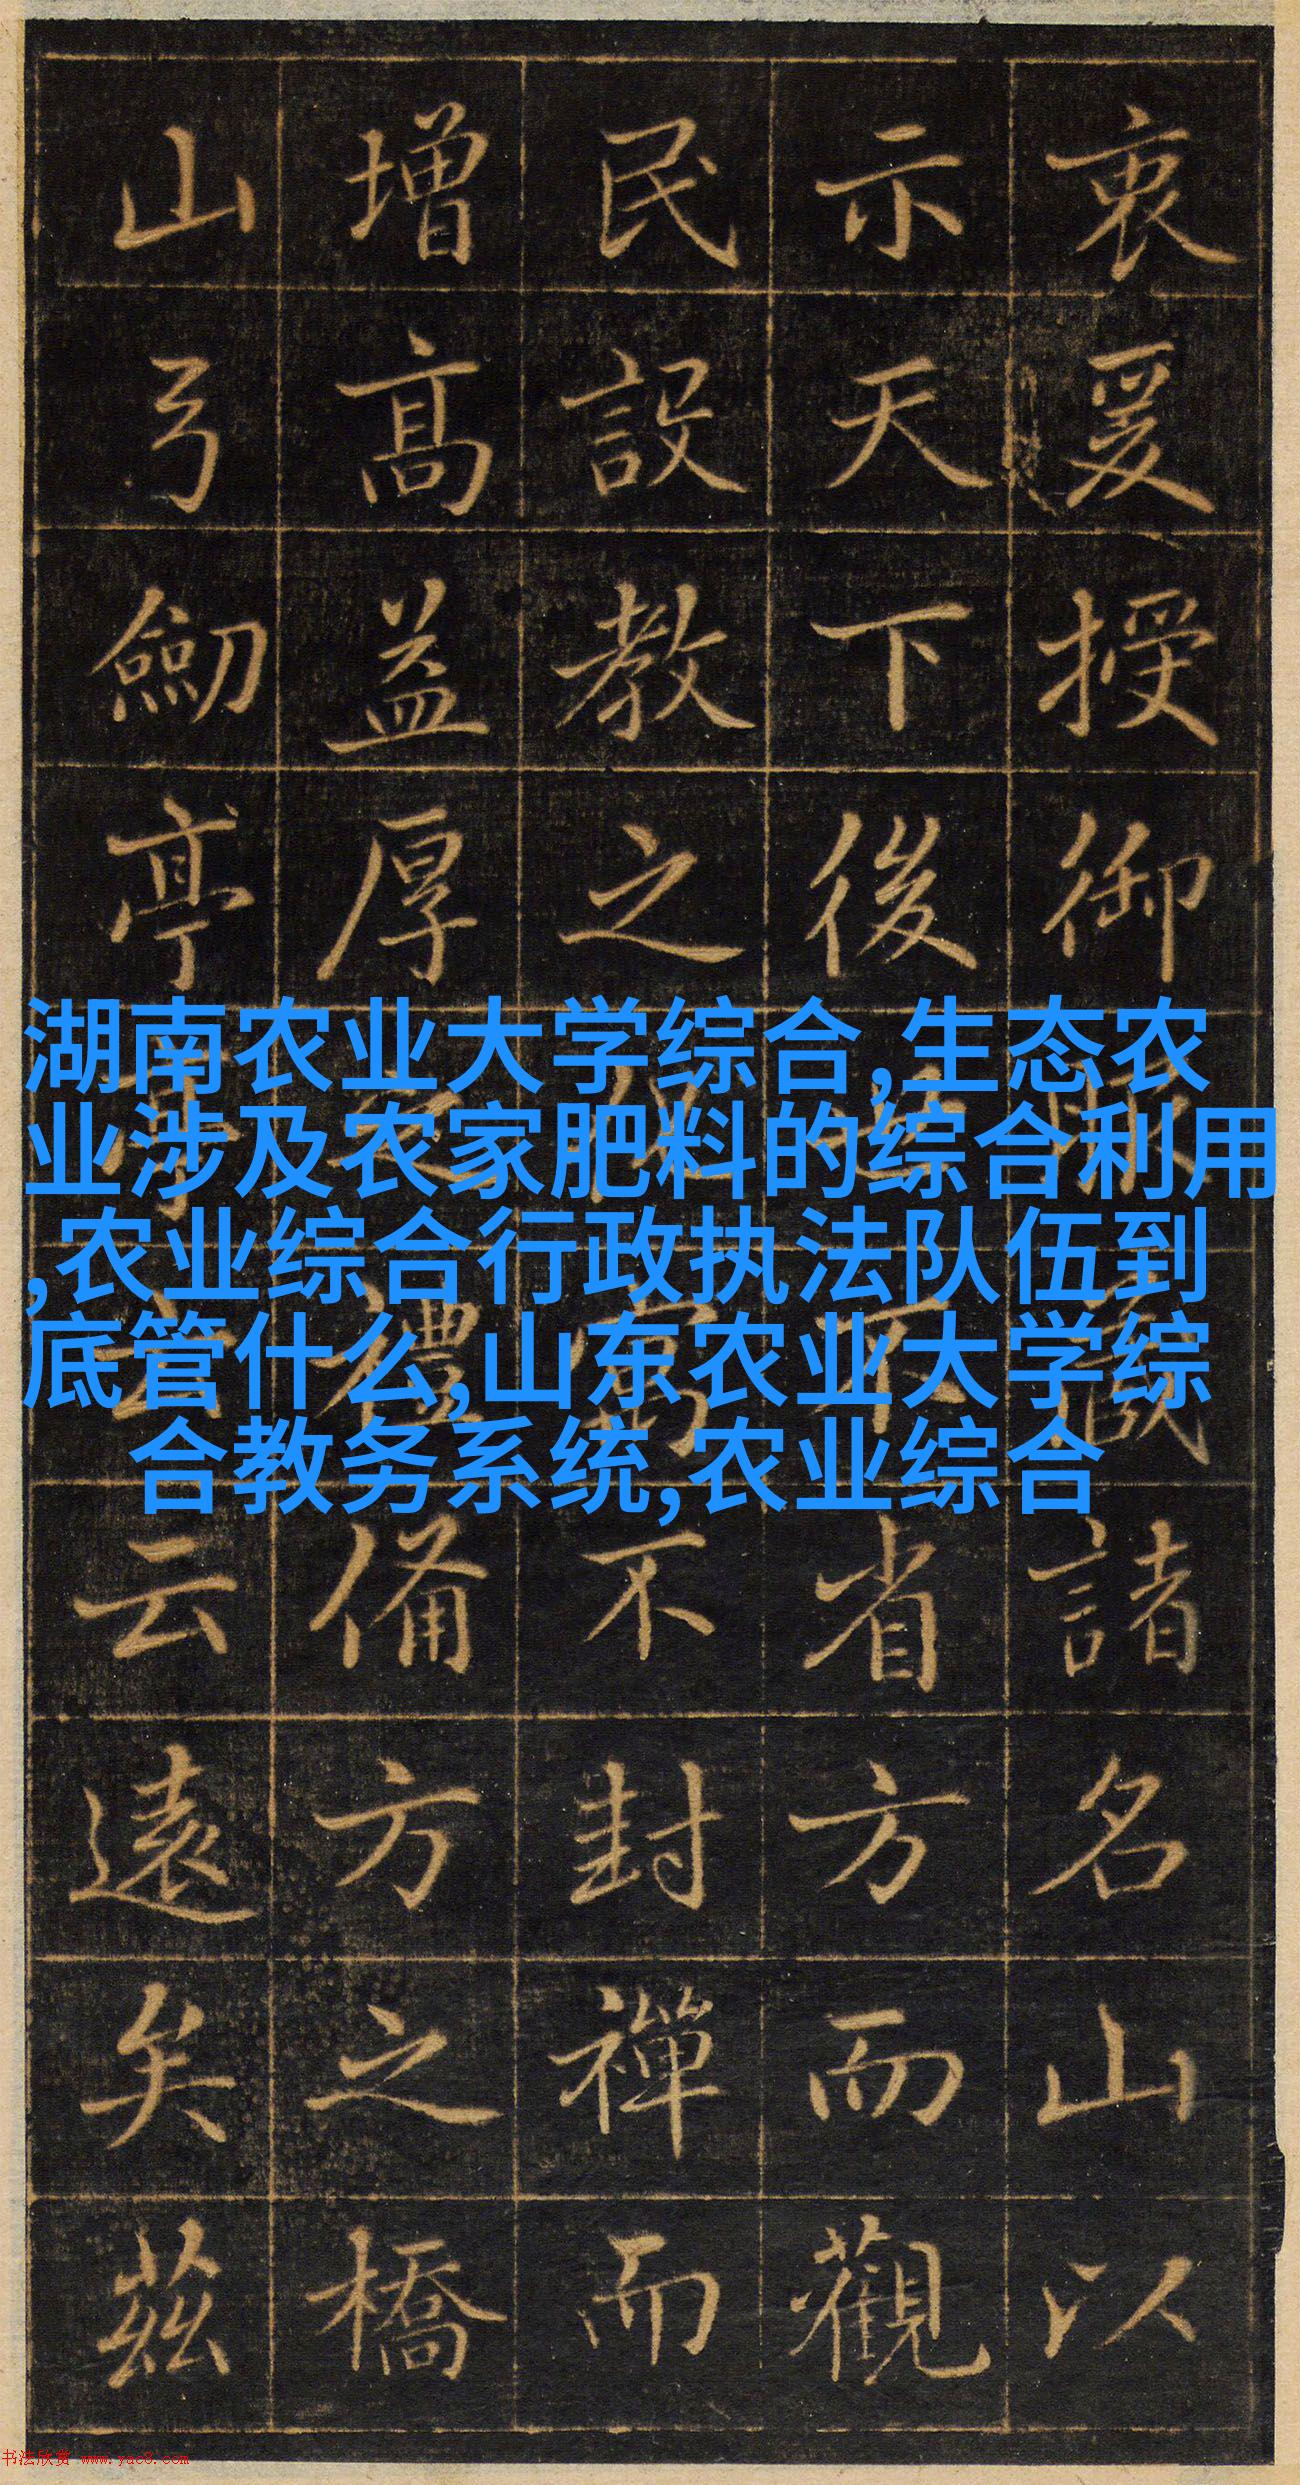 衷爰授御服藏諸名山以
示天下後世不省方而觀
民設教之不封禪而
增高益厚之禮備方之橋
山弓劒亭亭云云遠矣茲
湖南农业大学综合,生态农
业涉及农家肥料的综合利用
,农业综合行政执法队伍到
底管什么,山东农业大学综
合教务系统,农业综合
书法欣赏 www.yac8.com